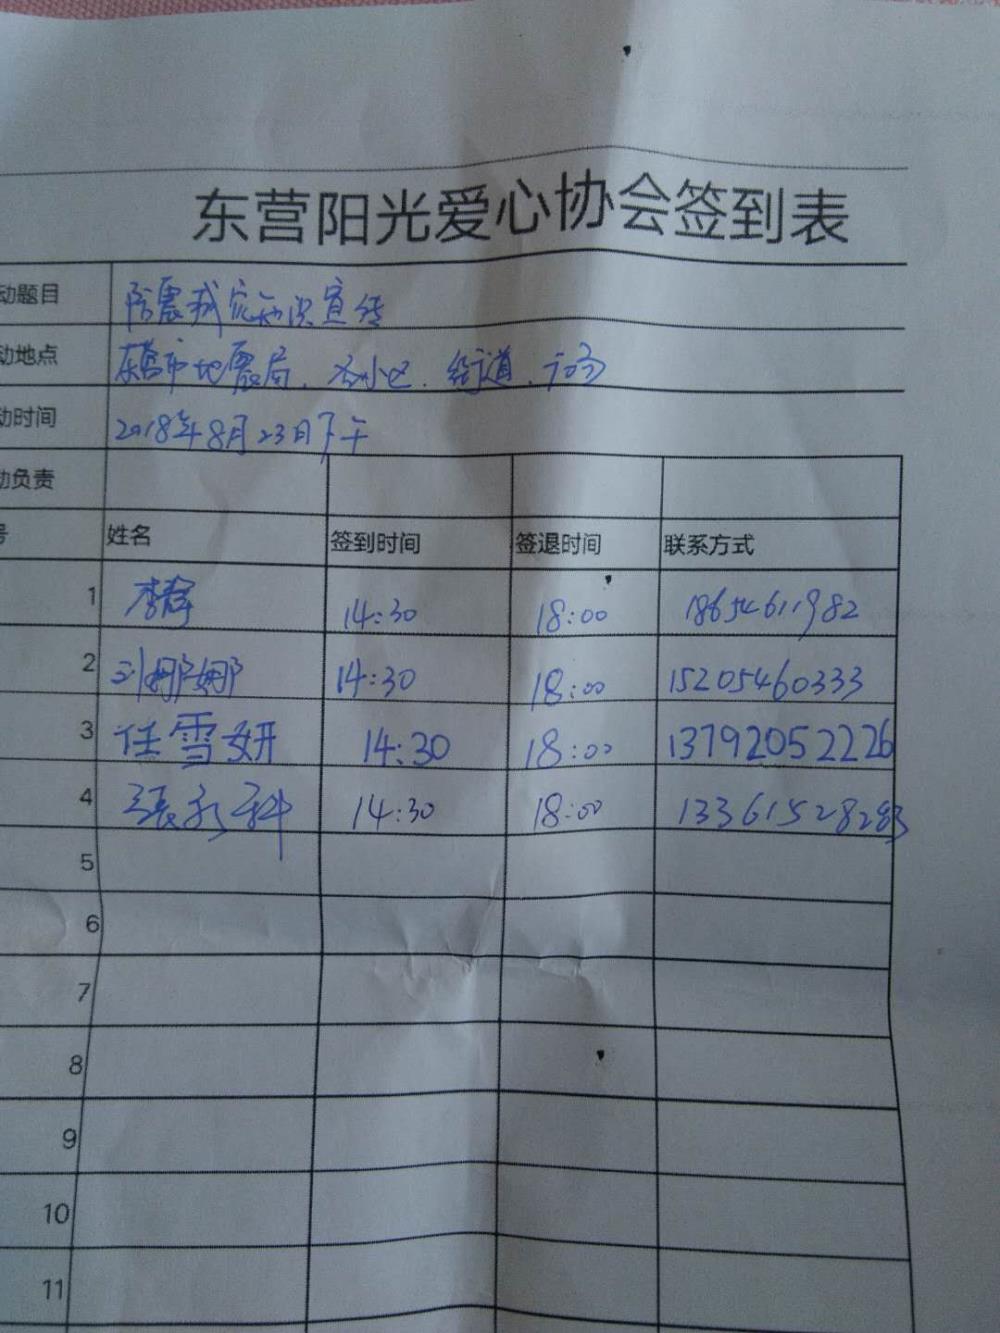 东营阳光爱心协会签到表
动题目 防震减灾知识宣传
动地点 东营市地震局、各小区、街道、广场
动时间 2018年8月23日下午
动负责
号 姓名 签到时间 签退时间 联系方式
1 李辉 14:30 18:00 18654611982
2 刘娜娜 14:30 18:00 15205460333
3 任雪妍 14:30 18:00 13792052226
4 张永科 14:30 18:00 13361528283
5
6
7
8
9
10
11